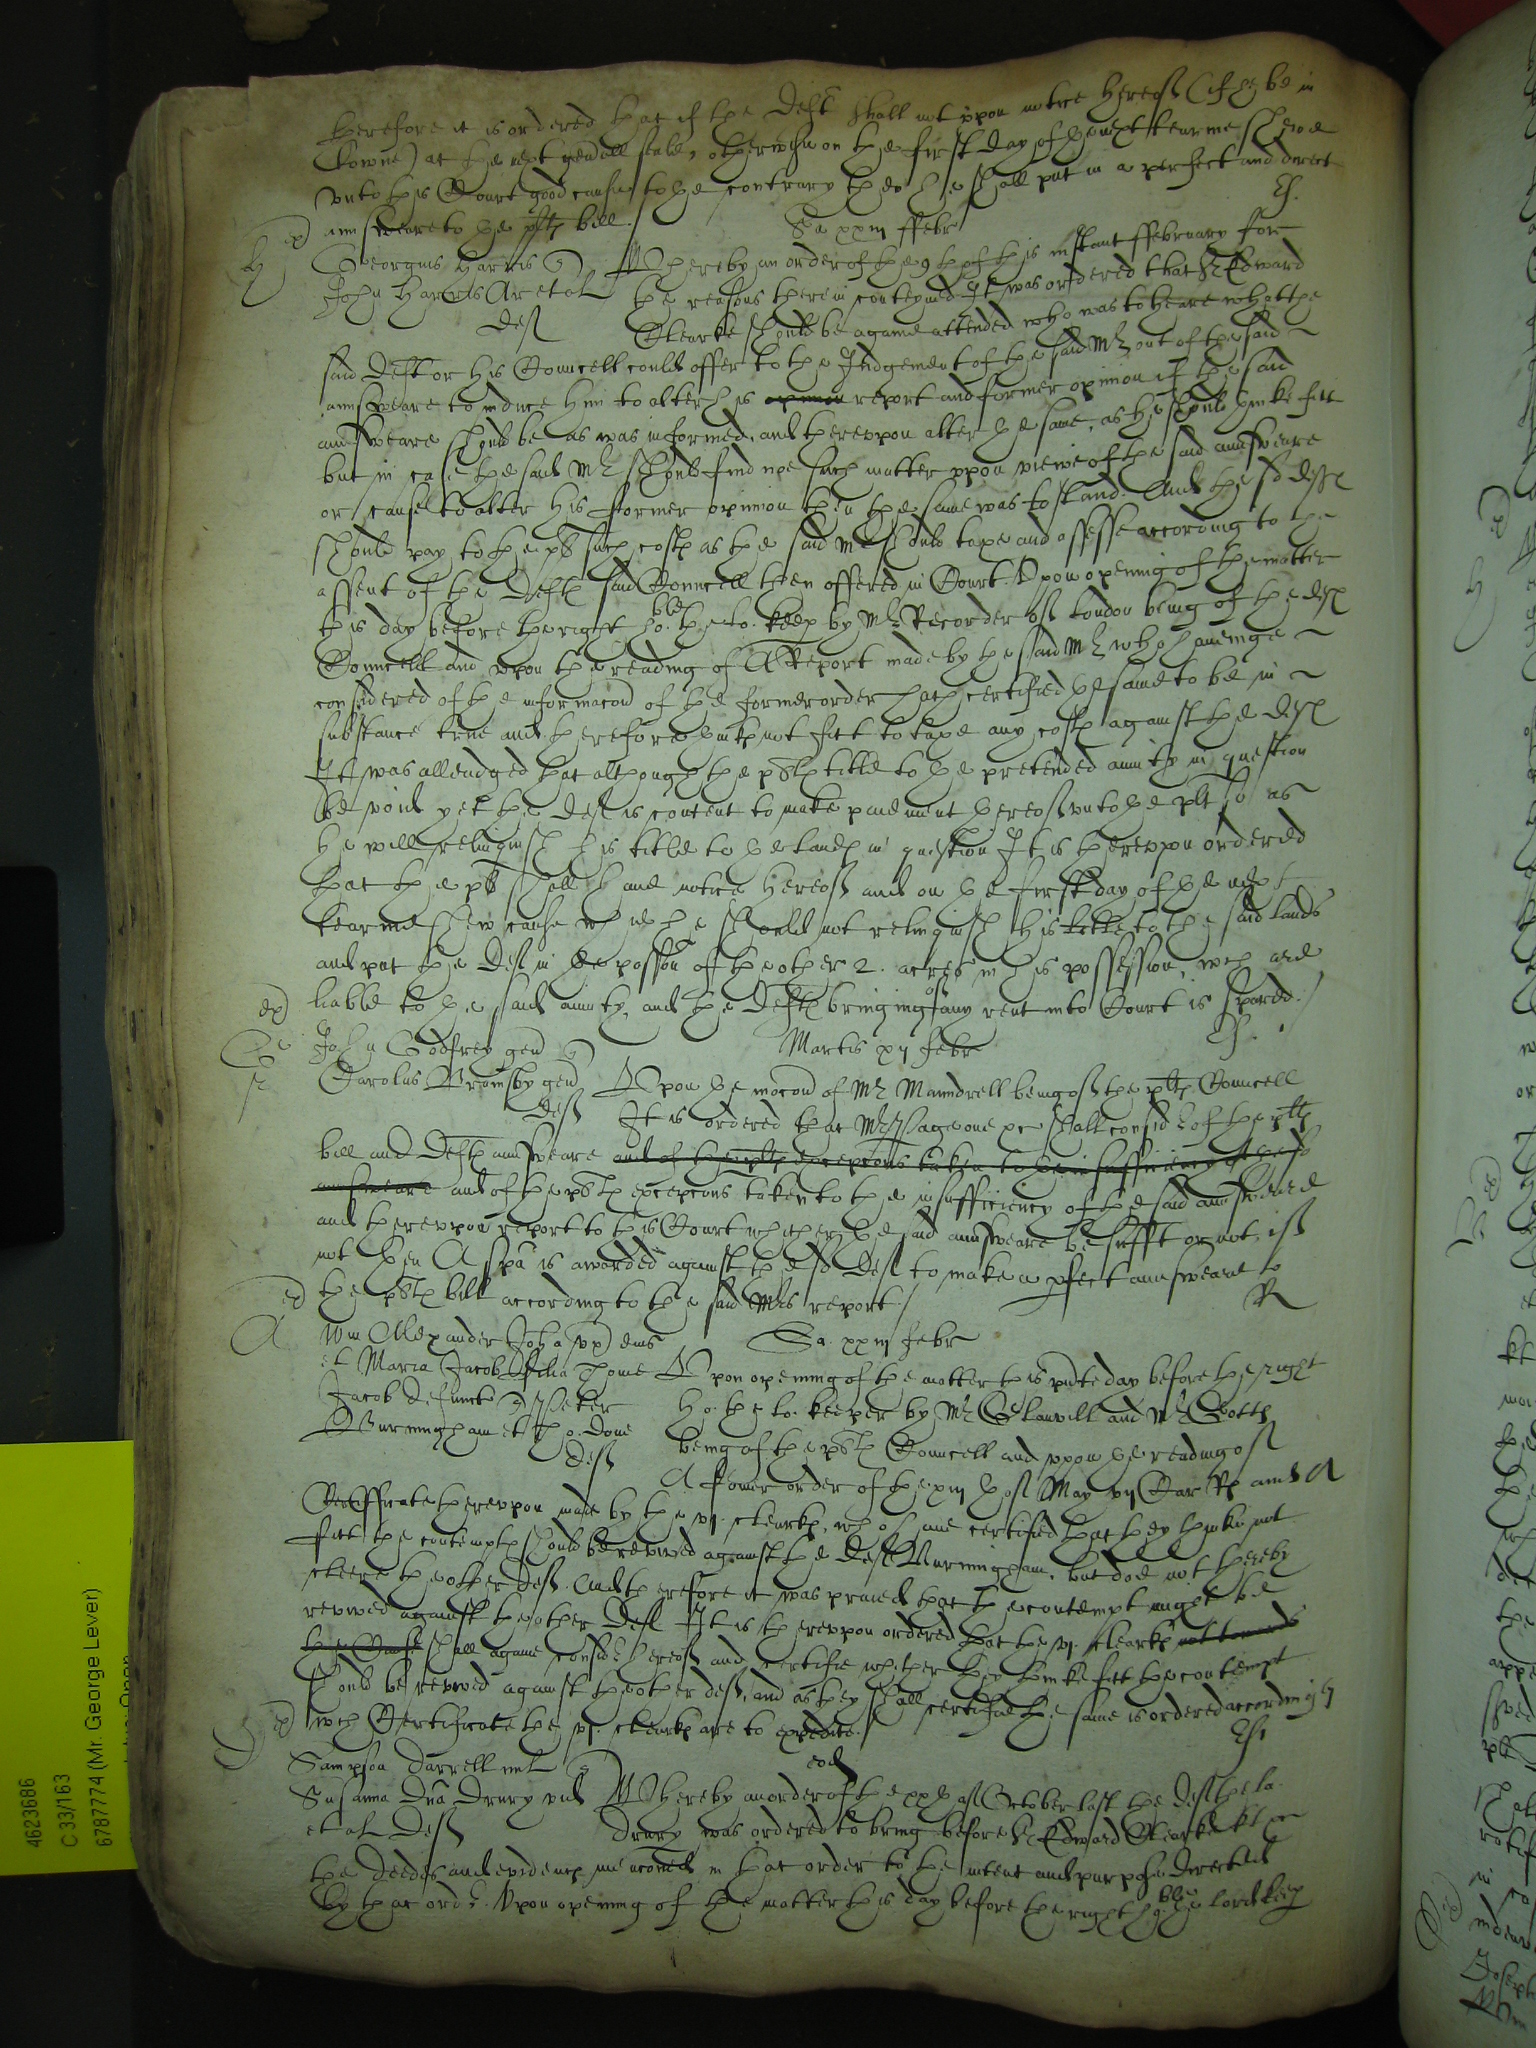 therefore it is ordered that if the Deft shall not vpon notice hereof (if he be in
towne) at the next generall seale, otherwise on the first day of the next tearme shewe
vnto this Court good cause to the contrary then he shall put in a perfect and direct
aunsweare to the plts bill
Sa xxiij febr
Georgius Harris
Whereby an order of the 9th of this instant ffebruary for
John Harris Ar et al
the reasons therein conteyned It was ordered that Sr Edward
def
Clearke should be againe attended who was to heare what the
said Deft or his Councell could offer to the Judgement of the said Mr out of the said
aunsweare to induce him to alter his opinion report and former opinion if the said
aunsweare should be as was informed, and therevpon alter the same, as he should thinke fitt
but in case the said Mr should find noe such matter vpon viewe of the said aunsweare
or cause to alter his former opinion then the same was to stand. And the sd deft
should pay to the plt such costs as the said Mr should taxe and assesse according to the
assent of the Defts said Councell then offered in Court. Vpon opening of the matter
this day before the right ho: the lo: keep by Mr Recorder of London being of the defts
Councell and vpon the reading of A Report made by the said Mr who haueinge
considered of the informacon of the former order hath certified the same to be in
substance true and therefore thinks not fitt to taxe any costs against the deft
It was alleadged that although the plts title to the pretended anuity in question
be void yet the deft is content to make paiement thereof vnto the plt so as
he will relinquish his title to the lands in question It is therevpon ordered
that the plt shall haue notice hereof and on the first day of the next
tearme shew cause why he should not relinquish his title to the said lands
and put the Deft in the possion of the other 2. acres in his possession, wch are
liable to the said anuity, and the Defts bringing of any rent into Court is spared.
John Godfrey gen
Martis xij febr
Carolus Bromsby gen
Vpon the mocon of Mr Maundrell being of the plts Councell
def
It is ordered that Mr Page one &c shall consider of the plts
bill and Defts aunsweare and of the plts excepcons taken to the insufficiency of the sd
aunsweare and of the plts excepcons taken to the insufficiency of the said aunsweare
and therevpon report to this Court whether the said aunsweare be sufft or not, if
not then A spa is awarded against the sd Deft to make a pfect aunsweare to
the plts bill according to the said Mrs report
R
Wm Alexander Joha vx eius
Sa. xxiij febr
et Maria Jacob filia Thome
Vpon opening of the matter this pnte day before the right
Jacob defunct
ho. the lo. keeper by Mr Glanvill and Mr
Burningham et Tho. Done
being of the plts Councell and vpon the reading of
def
A former order of the xiij th of May vij Car Rs and A
Certifficate therevpon made by the vj. clearks, who haue certified that they thinke not
fitt the contempts should be reviued against the Deft Burningham, but doe not thereby
cleere the other deft. And therefore it was praied that the contempt might be
reviued against the other Deft It is therevpon ordered that the vj. clearks not
the Cause shall againe consider thereof and certifie whether they thinke fitt the contempt
should be reviued against the other deft, and as they shall certifie the same is ordered accordingly
wch Certificate the vj. clearks are to expedite.
Sampson Darrell mil
eod
Susanna Dna Drury vid
Whereby an order of the xxth of October last the deft the la.
et al Def
Drury was ordered to bring before Sr Edward Clearke kt &c
the deedes and evidences menconed in that order to the intent and purpose directed
by that order. Vpon opening of the matter this day before the right ho: the lord keep
4623686
C 33/163
67877774 (Mr. George Lever)